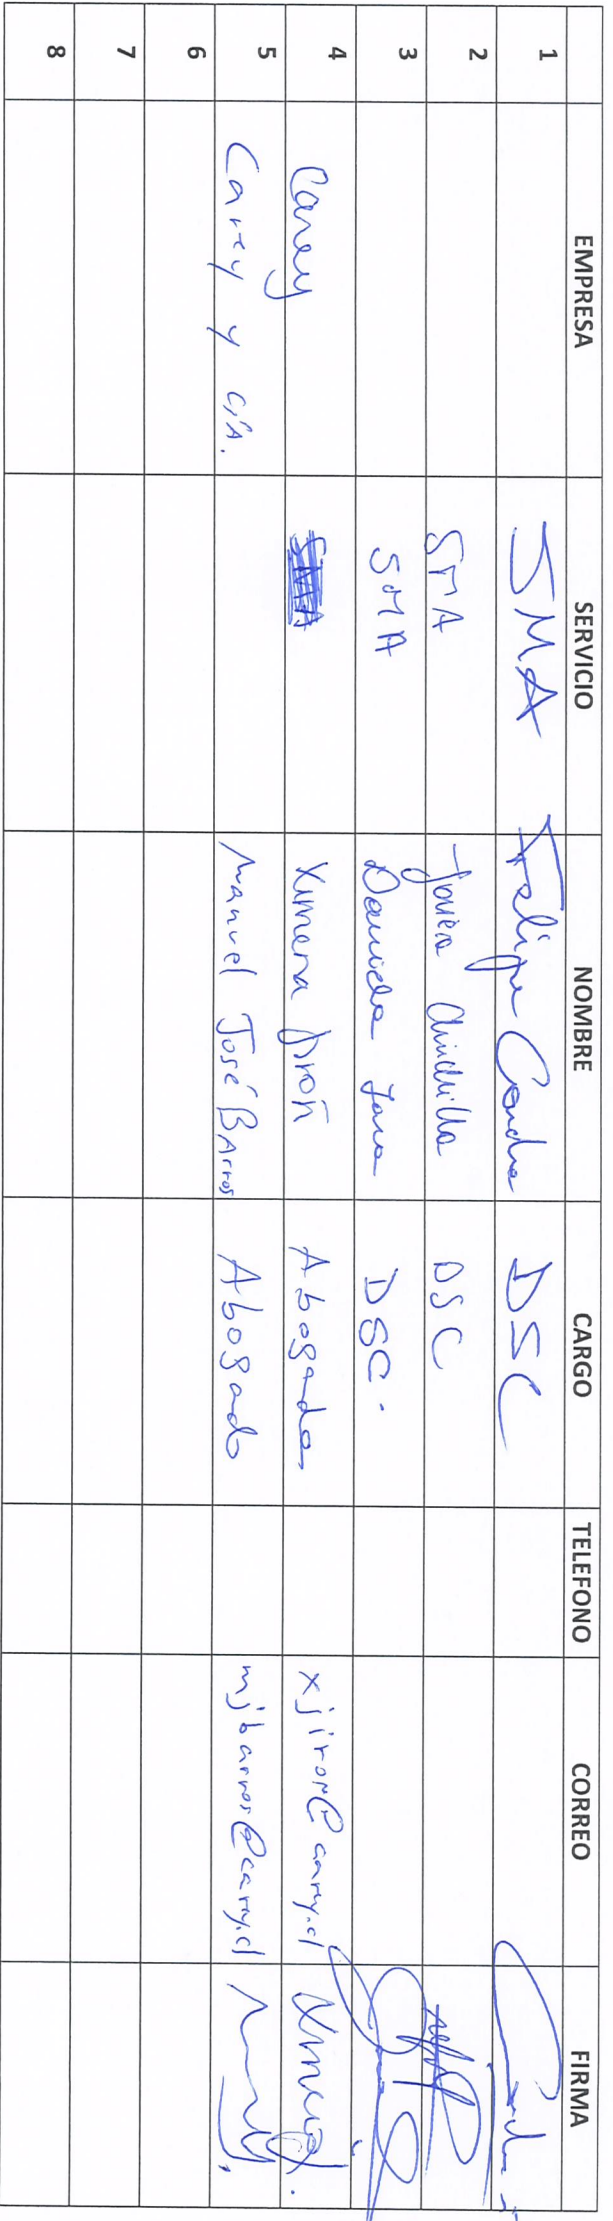 EMPRESA SERVICIO NOMBRE CARGO TELEFONO CORREO FIRMA
1 SMA Felipe Concha DSC
2 SMA DSC
3 SMA Daniela Jara DSC.
4 Carey SMA Ximena Jirón Abogada xjiron@carey.cl
5 Carey y CÍA. Manuel José Barros Abogado mjbarros@carey.cl
6
7
8